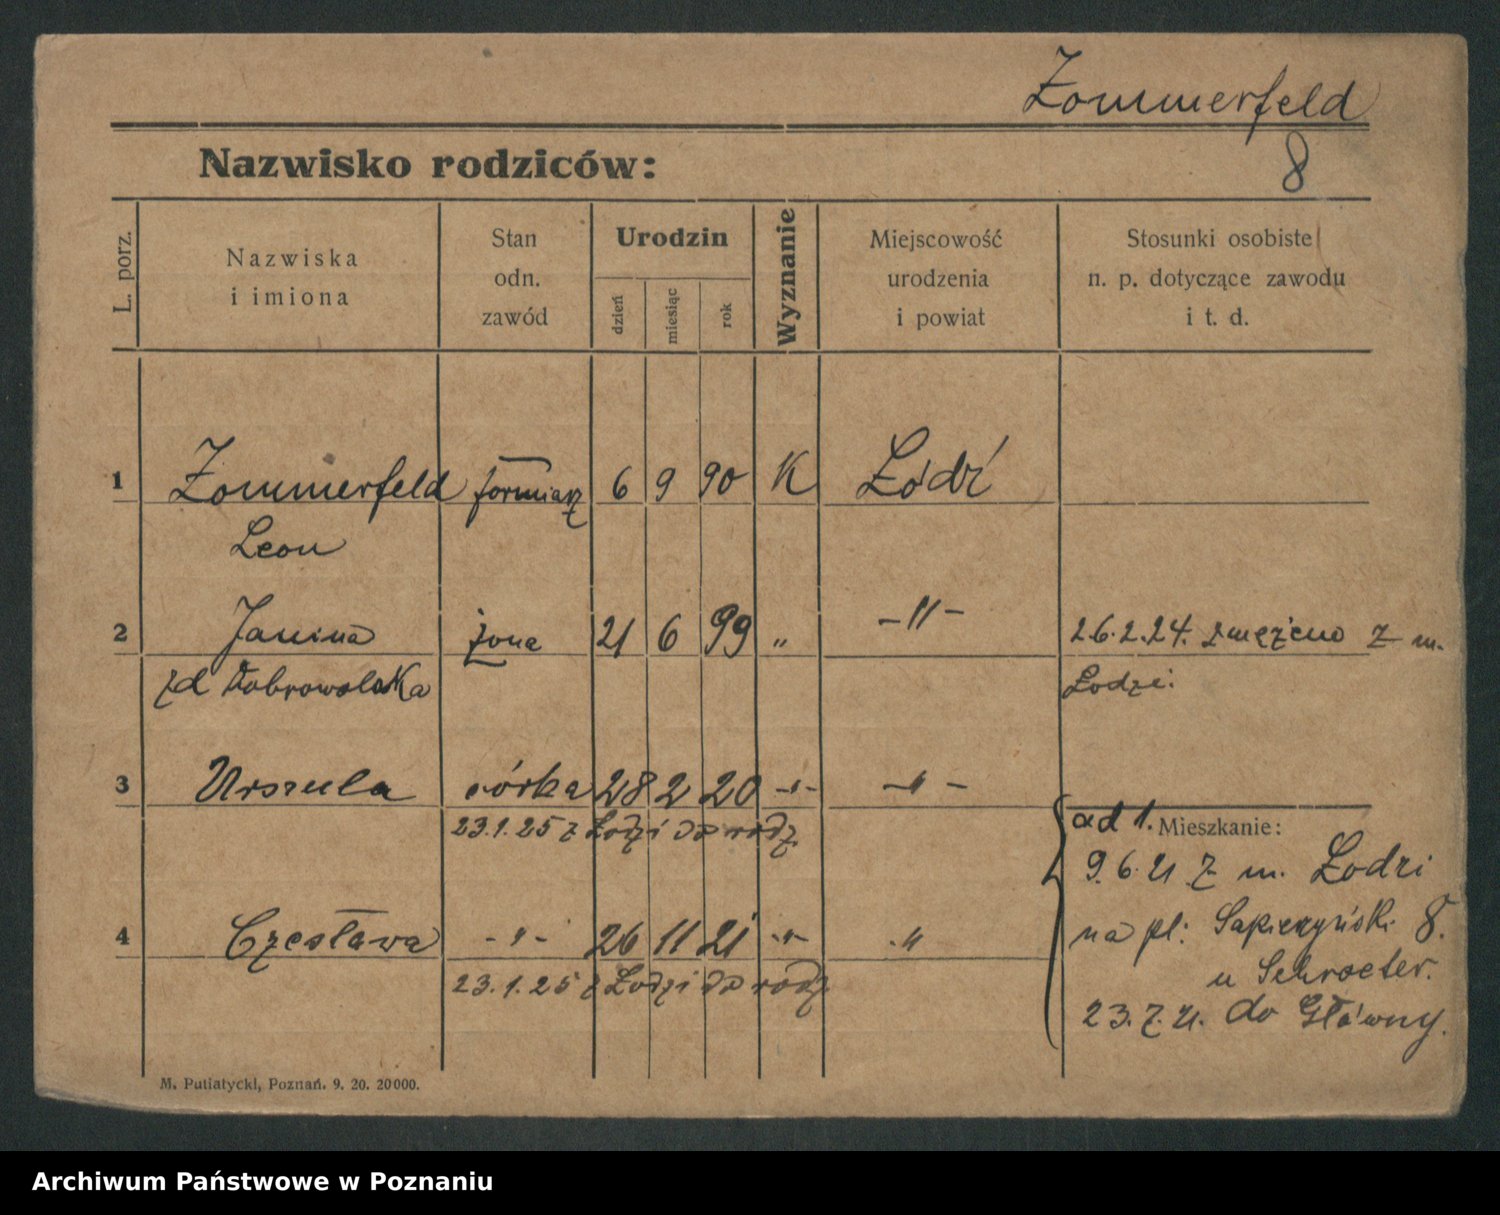 Zommerfeld
8
Nazwisko rodziców:
L. porz.
Nazwiska
i imiona
Stan
odn.
zawód
Urodzin
dzień
miesiąc
rok
Wyznanie
Miejscowość
urodzenia
i powiat
Stosunki osobiste
n. p. dotyczące zawodu
i t. d.
1 Zommerfeld formiarz 6 9 90 K Łódź
Leon
2 Janina żona 21 6 99 „ -"- 26.2.24. zmężeno z m.
zd Dobrowolska Łodzi.
3 Urszula córka 28 2 20 -"- -"-
23.1.25 z Łodzi do rodz.
ad 1. Mieszkanie:
9.6.21 z m. Łodzi
4 Czesława -"- 26 11 21 -"- "
na pl. Sapieżyński 8.
23.1.25 z Łodzi do rodz
u Schroeter.
23.7.21. do Główny.
M. Putiatycki, Poznań. 9. 20. 20000.
Archiwum Państwowe w Poznaniu